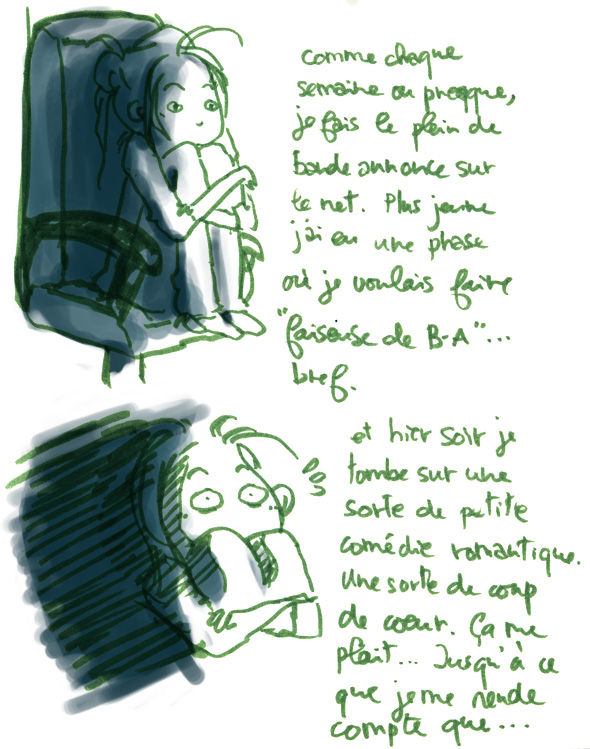 comme chaque
semaine ou presque,
je fais le plein de
bande annonce sur
le net. Plus jeune
j'ai eu une phase
où je voulais faire
"faiseuse de B-A"...
bref.
et hier soir je
tombe sur une
sorte de petite
comédie romantique.
Une sorte de coup
de cœur. Ça me
plait... Jusqu'à ce
que je me rende
compte que...